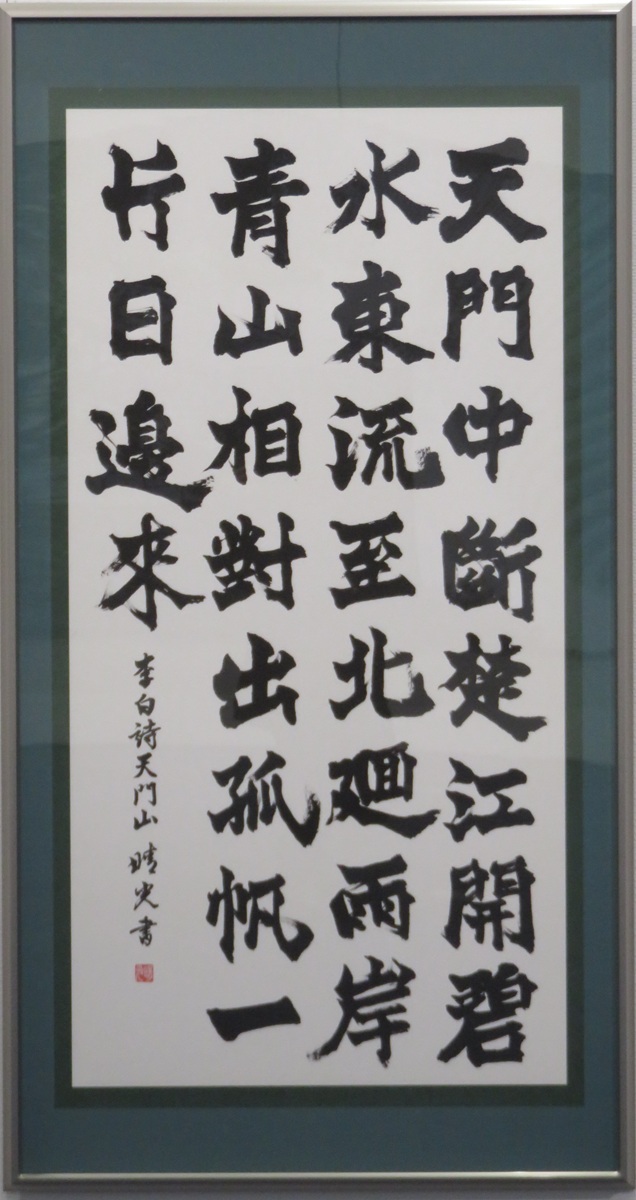 天門中斷楚江開碧
水東流至北廻雨岸
青山相對出孤帆一
片日邊來
李白詩天門山 晴光書